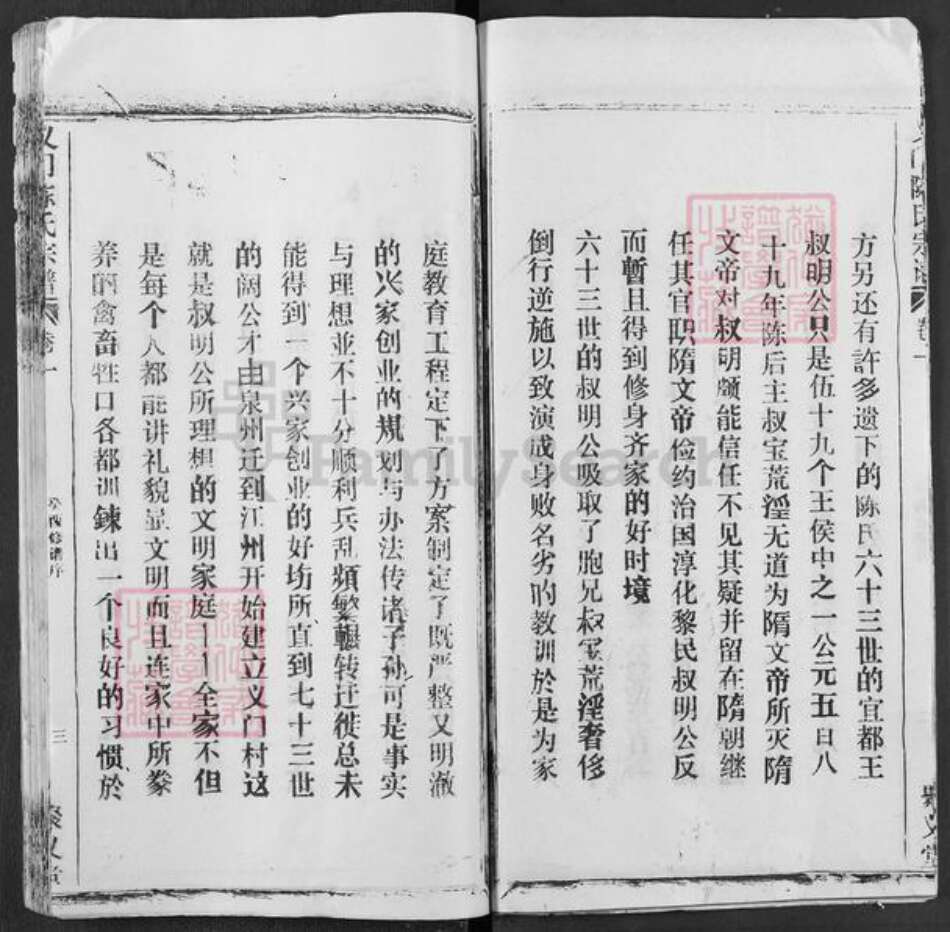 方另还有許多遗下的陈氏六十三世的宜都王
叔明公只是伍十九个王侯中之一公元五百八
十九年陈后主叔宝荒淫无道为隋文帝所灭隋
文帝对叔明颇能信任不见其疑并留在隋朝继
任其官职隋文帝俭约治国淳化黎民叔明公反
而暫且得到修身齐家的好时境
六十三世的叔明公吸取了胞兄叔宝荒淫奢侈
倒行逆施以致演成身败名劣的教训於是为家
聚义堂
义门陈氏宗谱
卷一
癸酉修谱序
三
聚义堂
庭教育工程定下了方案制定了既严整又明澈
的兴家创业的规划与办法传诸子孙可是事实
与理想並不十分顺利兵乱頻繁輾转迁徙总未
能得到一个兴家创业的好场所直到七十三世
的阔公才由泉州迁到江州开始建立义门村这
就是叔明公所理想的文明家庭——全家不但
是每个人都能讲礼貌显文明而且连家中所豢
养的禽畜牲口各都训鍊出一个良好的习惯於
FamilySearch